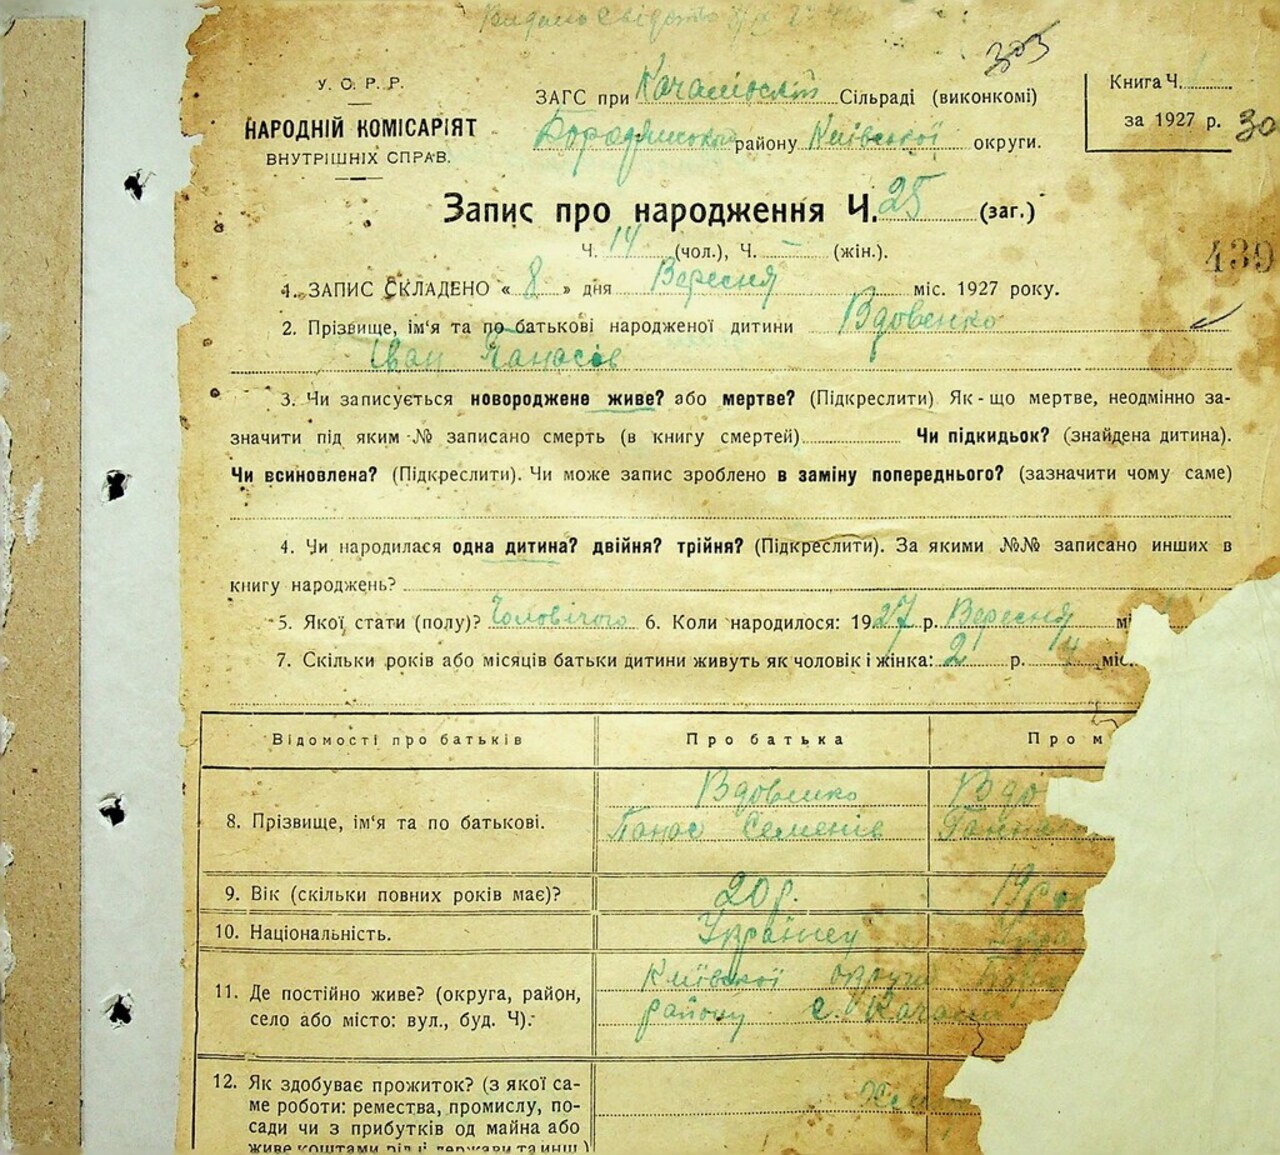 305
У. С. Р. Р.
НАРОДНІЙ КОМІСАРІЯТ
ВНУТРІШНІХ СПРАВ.
ЗАГС при Качалівскій Сільраді (виконкомі)
району Київської округи.
Книга Ч.
за 1927 р. 30
Запис про народження Ч. 25 (заг.)
Ч. 14 (чол.), Ч. – (жін.).
439
1. ЗАПИС СКЛАДЕНО « 8 » дня Вересня міс. 1927 року.
2. Прізвище, ім'я та по батькові народженої дитини Вдовенко
Іван Панасів
3. Чи записується новороджене живе? або мертве? (Підкреслити) Як-що мертве, неодмінно за-
значити під яким № записано смерть (в книгу смертей) Чи підкидьок? (знайдена дитина).
Чи всиновлена? (Підкреслити). Чи може запис зроблено в заміну попереднього? (зазначити чому саме)
4. Чи народилася одна дитина? двійня? трійня? (Підкреслити). За якими №№ записано инших в
книгу народжень?
5. Якої стати (полу)? Чоловічого 6. Коли народилося: 1927 р. Вересня мі
7. Скільки років або місяців батьки дитини живуть як чоловік і жінка: 2 р. 4 міс.
Відомості про батьків
Про батька
Про м
8. Прізвище, ім'я та по батькові.
Вдовенко
Панас Семенів
Вдо
Ганна
9. Вік (скільки повних років має)?
20 р.
19 р
10. Національність.
Українец
Укра
11. Де постійно живе? (округа, район,
село або місто: вул., буд. Ч).
Київської округи Боро
району с. Качал
12. Як здобуває прожиток? (з якої са-
ме роботи: ремества, промислу, по-
сади чи з прибутків од майна або
живе коштами рідні, держави та инш.)